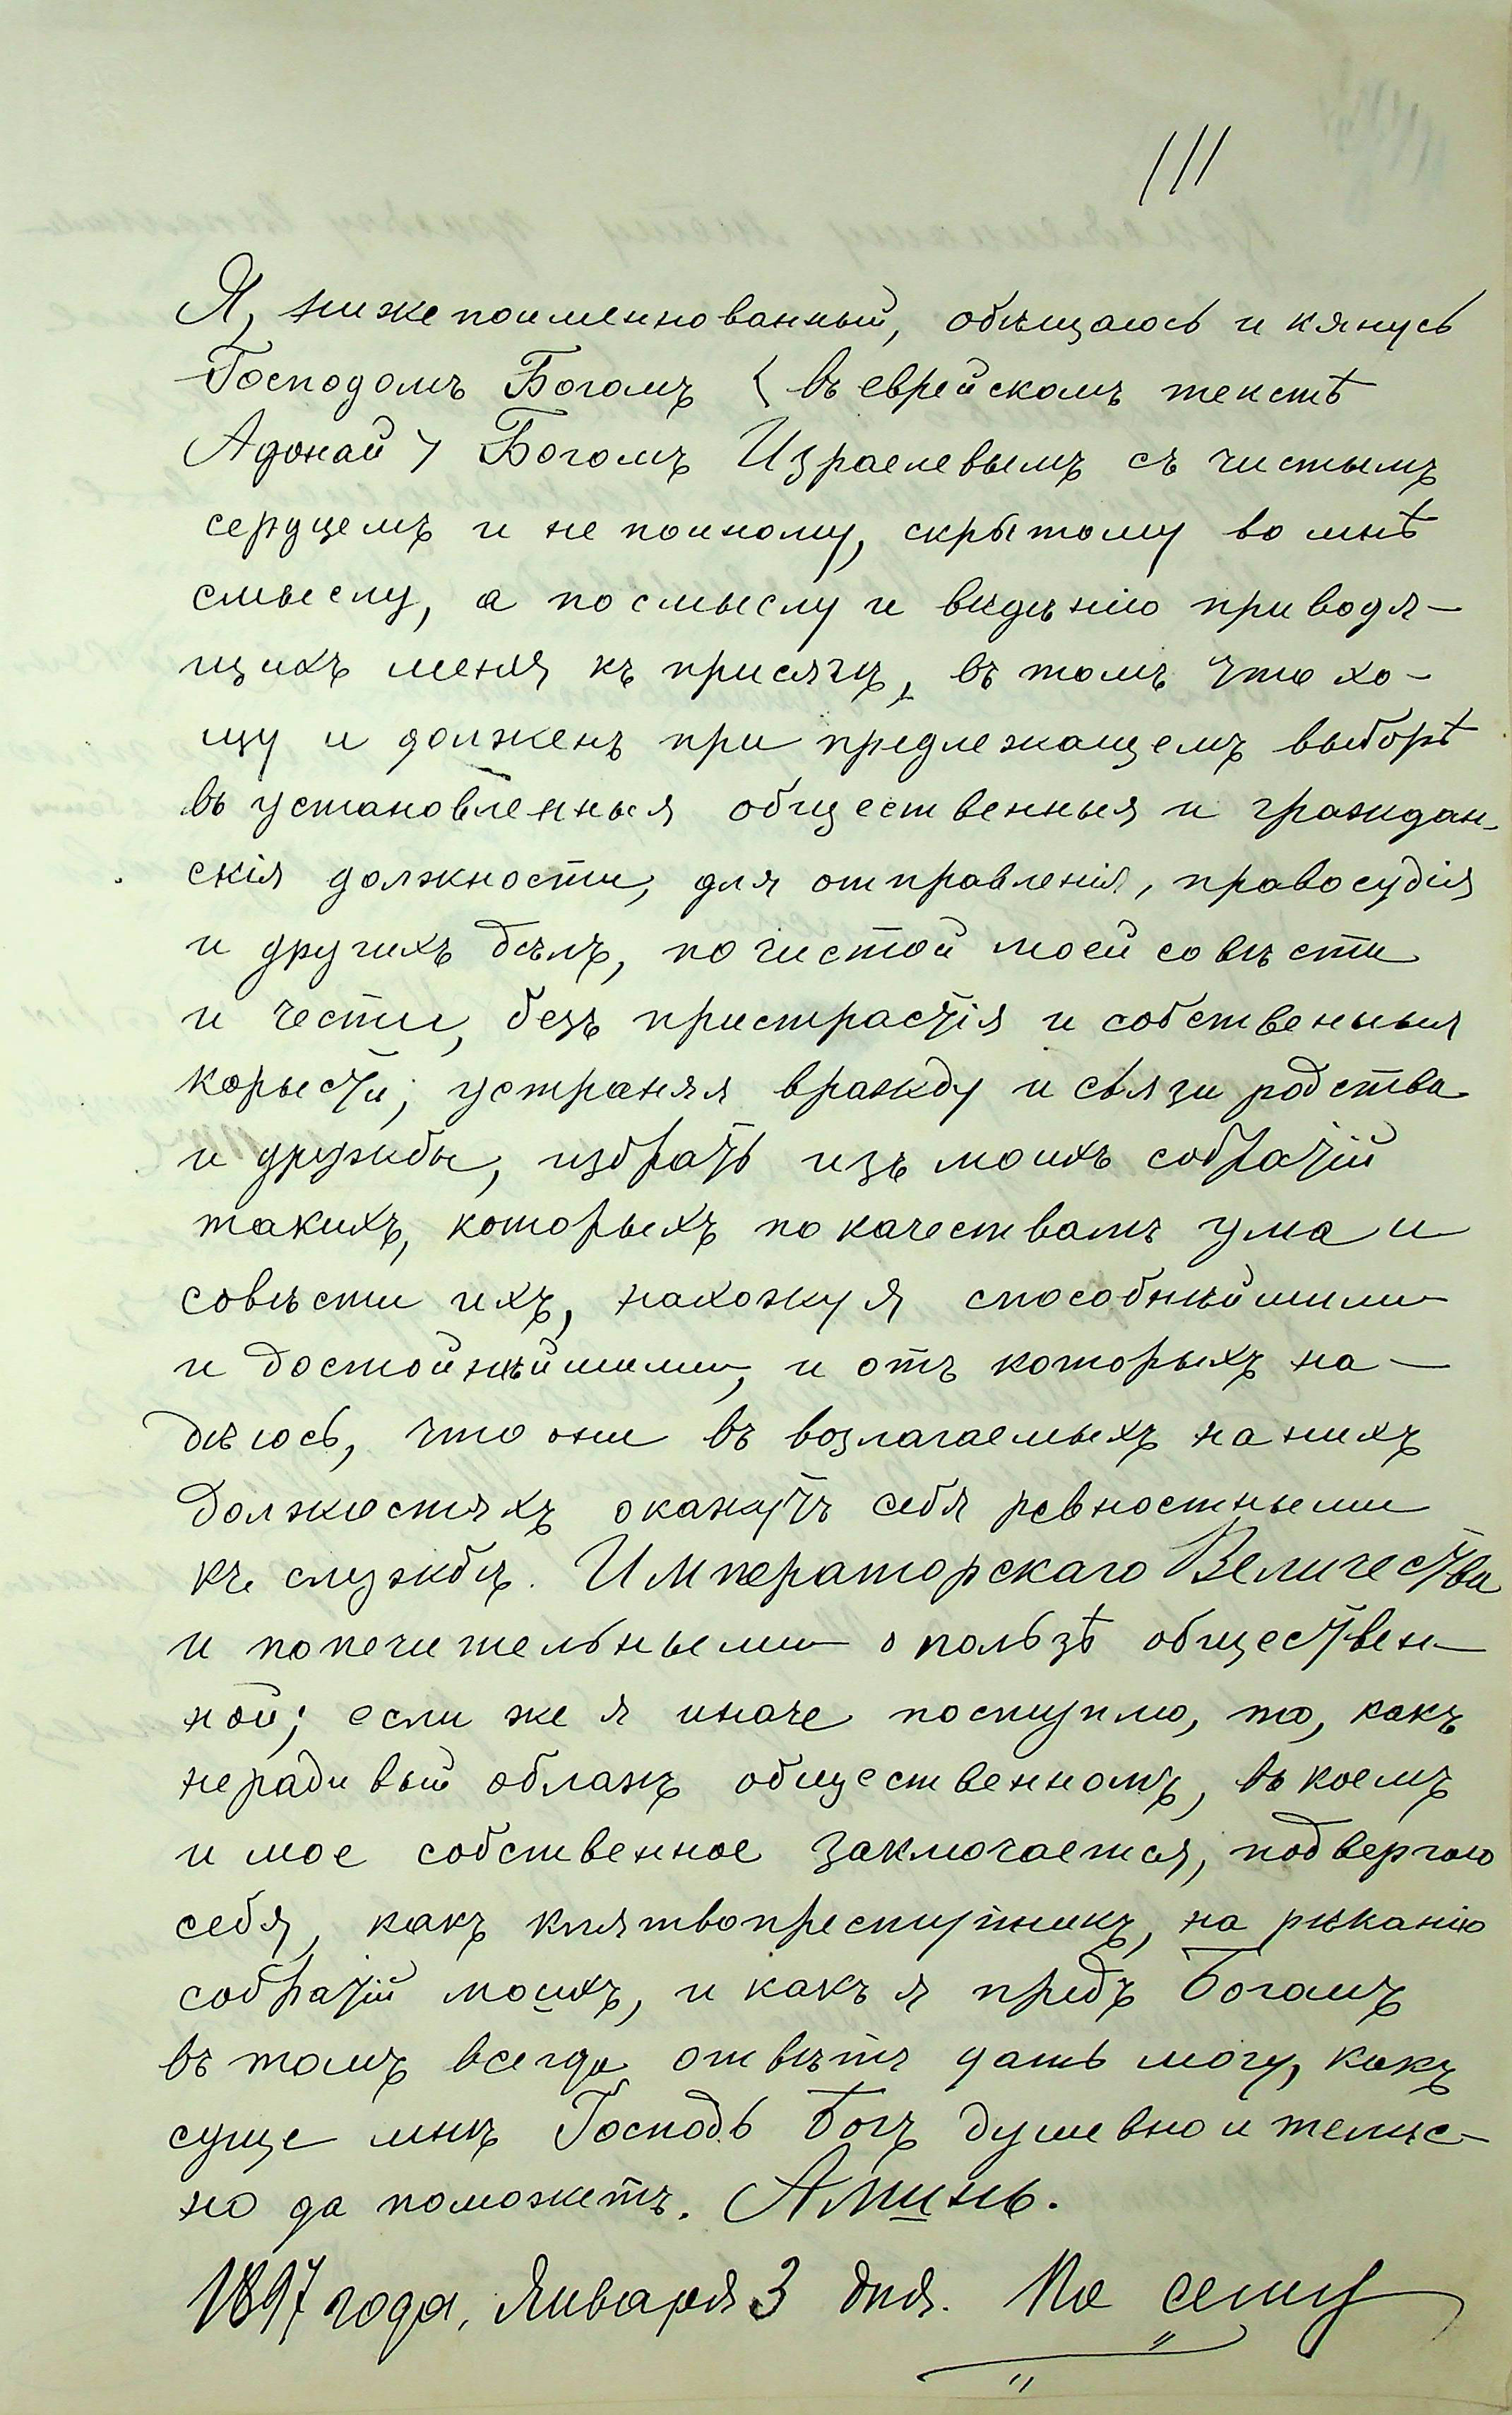 111
Я, нижепоименнованный, обѣщаюсь и клянусь
Господомъ Богомъ (въ еврейскомъ текстѣ
Адонай) Богомъ Израелевымъ съ чистымъ
сердцемъ и не поиному, скрытому во мнѣ
смыслу, а по смыслу и видѣнію приводя-
щихъ меня къ присягѣ, въ томъ что хо-
щу и долженъ при предлежащемъ выборѣ
въ установленныя общественныя и граждан-
скія должности, для отправленія, правосудія
и другихъ дѣлъ, по чистой моей совѣсти
и чести, безъ пристрастія и собственныя
корысти, устраняя вражду и связи родства
и дружбы, избрать изъ моихъ собратій
такихъ, которыхъ по качествамъ ума и
совѣсти ихъ, нахожу я способнѣйшими
и достойнѣйшими, и отъ которыхъ на-
дѣюсь, что они въ возлагаемыхъ на нихъ
должностяхъ окажутъ себя ревностными
къ службѣ. Императорскаго Величества
и попечительными о пользѣ обществен-
ной; если же я иначе поступлю, то, какъ
нерадивый облагѣ общественномъ, въ коемъ
и мое собственное заключается, подвергаю
себя, какъ клятвопреступникъ, нарѣканію
собратій моихъ, и какъ я предъ Богомъ
въ томъ всегда отвѣтъ дать могу, какъ
суще мнѣ Господь Богъ душевно и телѣс-
но да поможетъ. Аминь.
1897 года, Января 3 дня. По сему